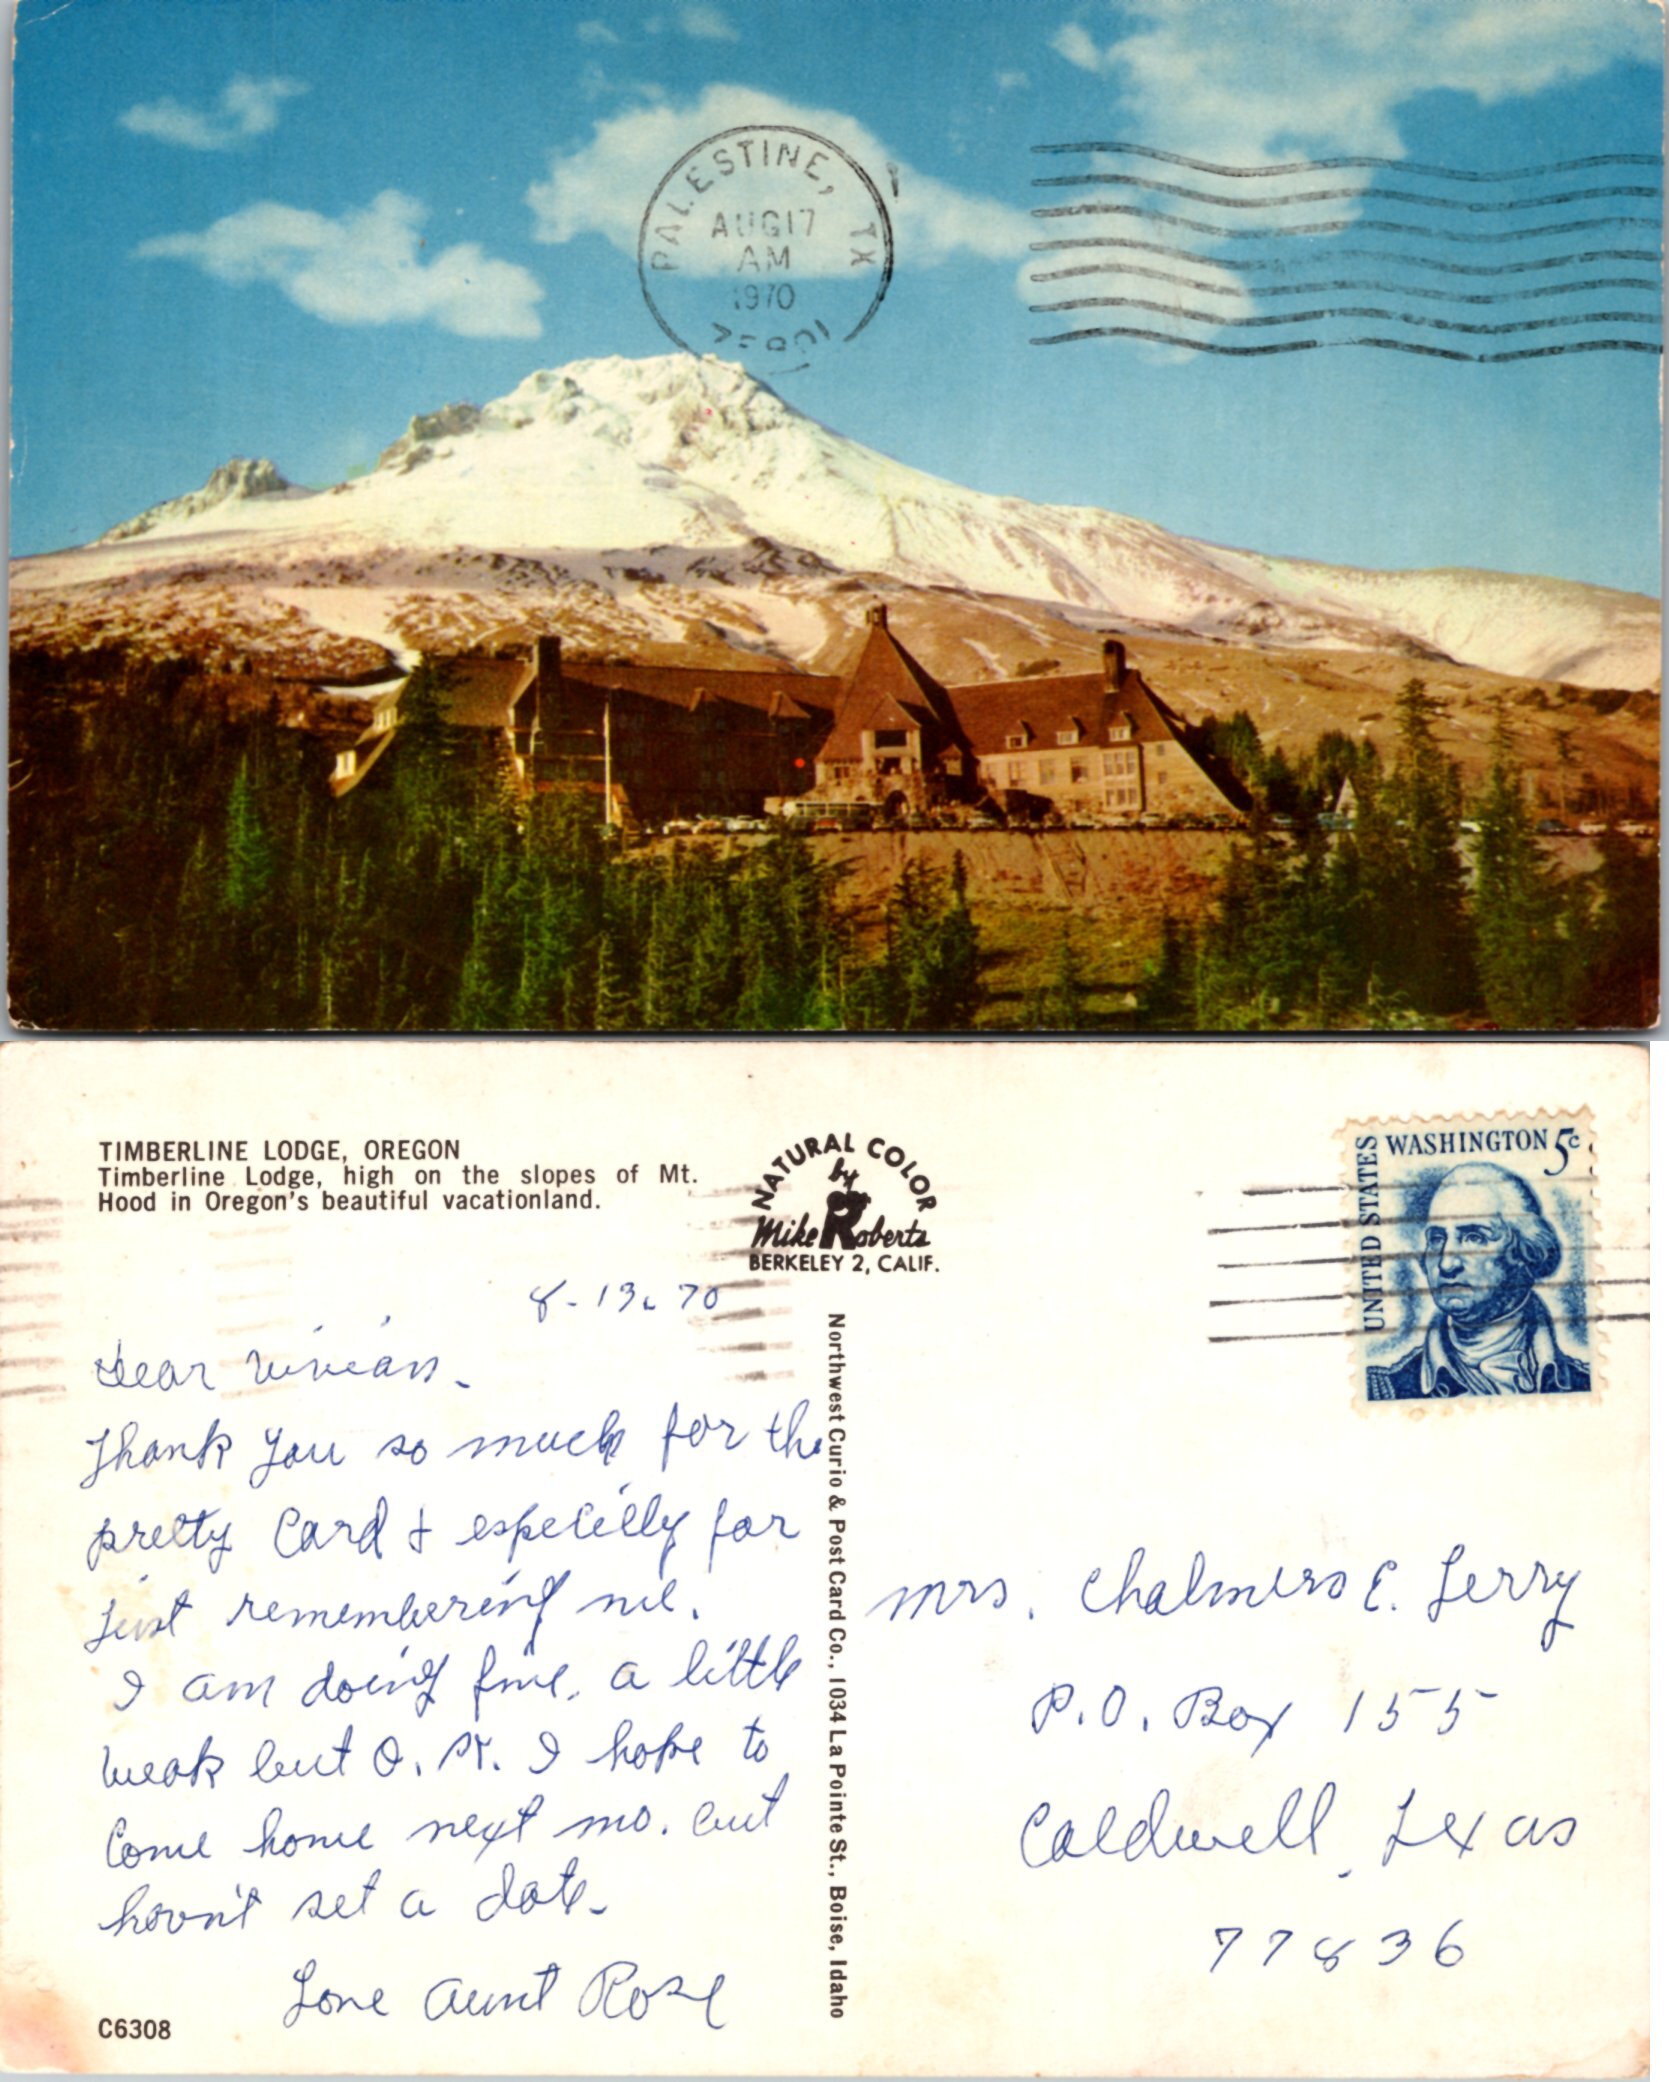 PALESTINE, TX
AUG 17
AM
1970
TIMBERLINE LODGE, OREGON
Timberline Lodge, high on the slopes of Mt.
Hood in Oregon's beautiful vacationland.
NATURAL COLOR
by
Mike Roberts
BERKELEY 2, CALIF.
UNITED STATES
WASHINGTON 5c
8-13-70
Dear Vivian.
Thank you so much for the
pretty Card & especilly for
Just remembering me.
I am doing fine, a little
weak but O.K. I hope to
Come home next mo. but
havn't set a date.
Love Aunt Rose
C6308
Northwest Curio & Post Card Co., 1034 La Pointe St., Boise, Idaho
Mrs. Chalmers E. Terry
P.O. Box 155
Caldwell, Texas
77836